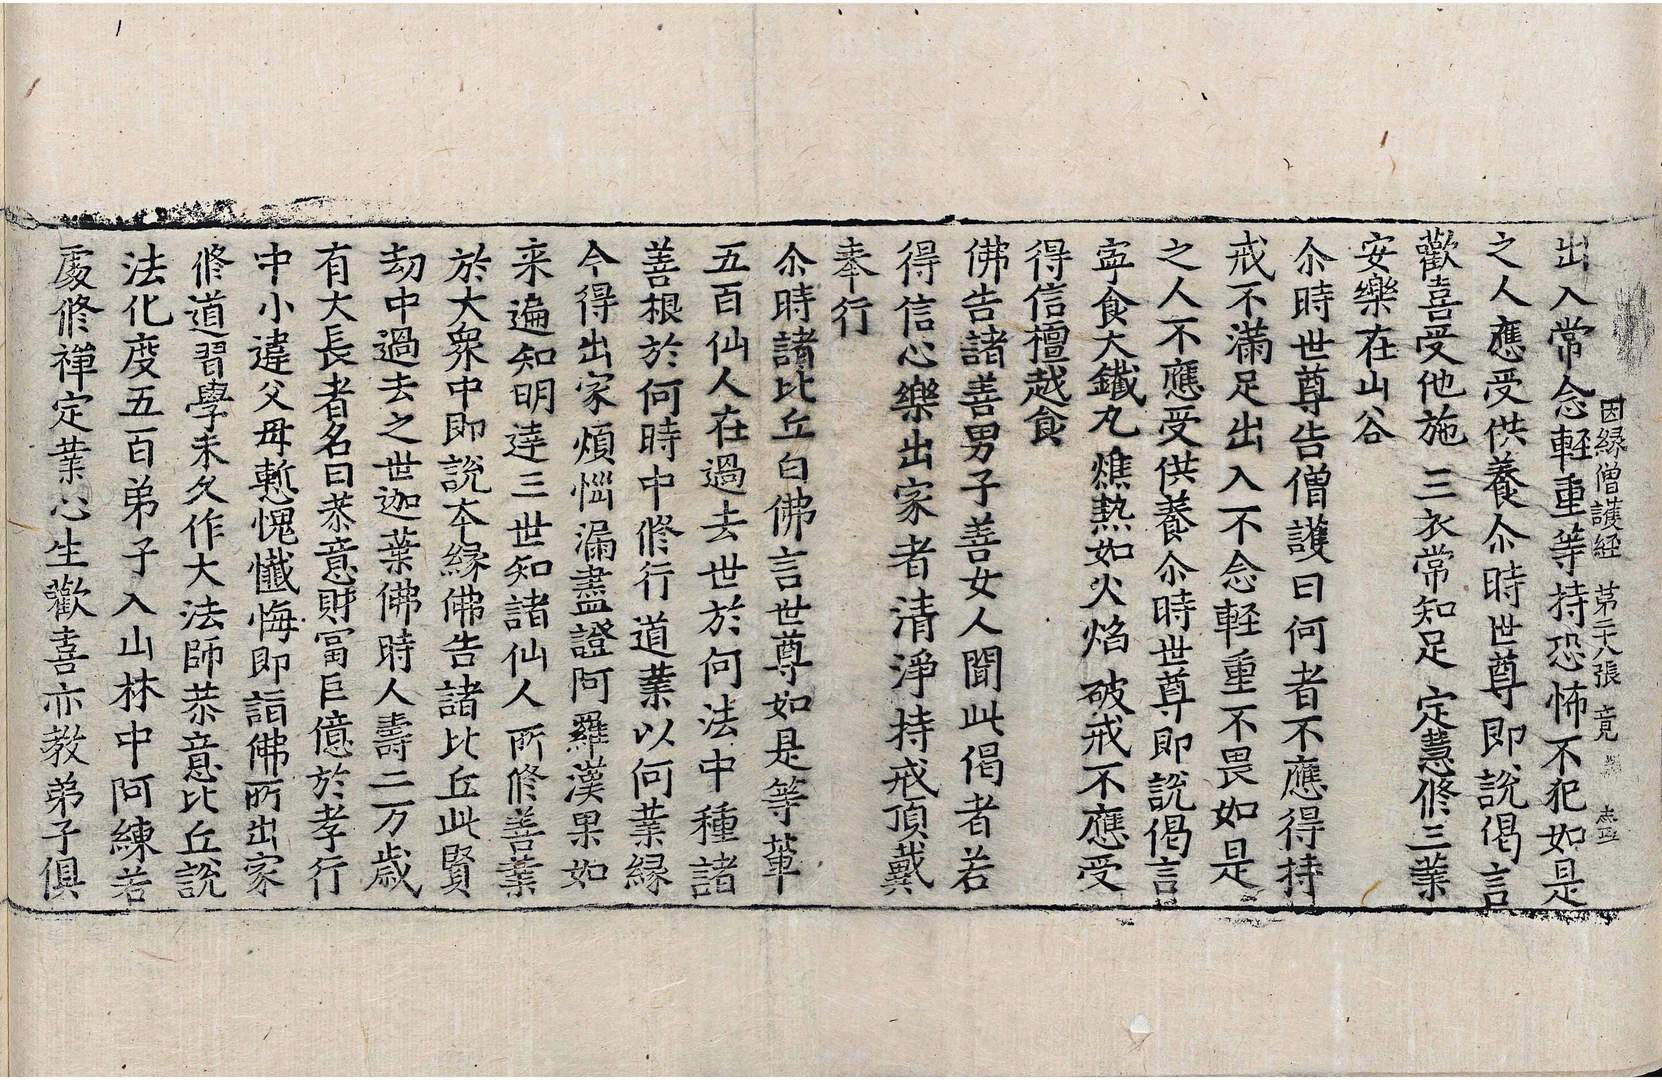 因緣僧護經 第二十八張 竟
出入常念軽重等持恐怖不犯如是
之人應受供養尒時世尊即說偈言
歡喜受他施 三衣常知足 定慧修三業
安樂在山谷
尒時世尊告僧護曰何者不應得持
戒不滿足出入不念軽重不畏如是
之人不應受供養尒時世尊即說偈言
寧食大鐵丸 燋熱如火焰 破戒不應受
得信檀越食
佛告諸善男子善女人聞此偈者若
得信心樂出家者清淨持戒頂戴
奉行
尒時諸比丘白佛言世尊如是等軰
五百仙人在過去世於何法中種諸
善根於何時中修行道業以何業緣
今得出家煩惱漏盡證阿羅漢果如
来遍知明達三世知諸仙人所修善業
於大眾中即說夲緣佛告諸比丘此賢
劫中過去之世迦葉佛時人壽二万歲
有大長者名曰恭意財冨巨億於孝行
中小違父母慙愧懺悔即詣佛所出家
修道習學未久作大法師恭意比丘說
法化度五百弟子入山林中阿練若
處修禪定業心生歡喜亦教弟子俱